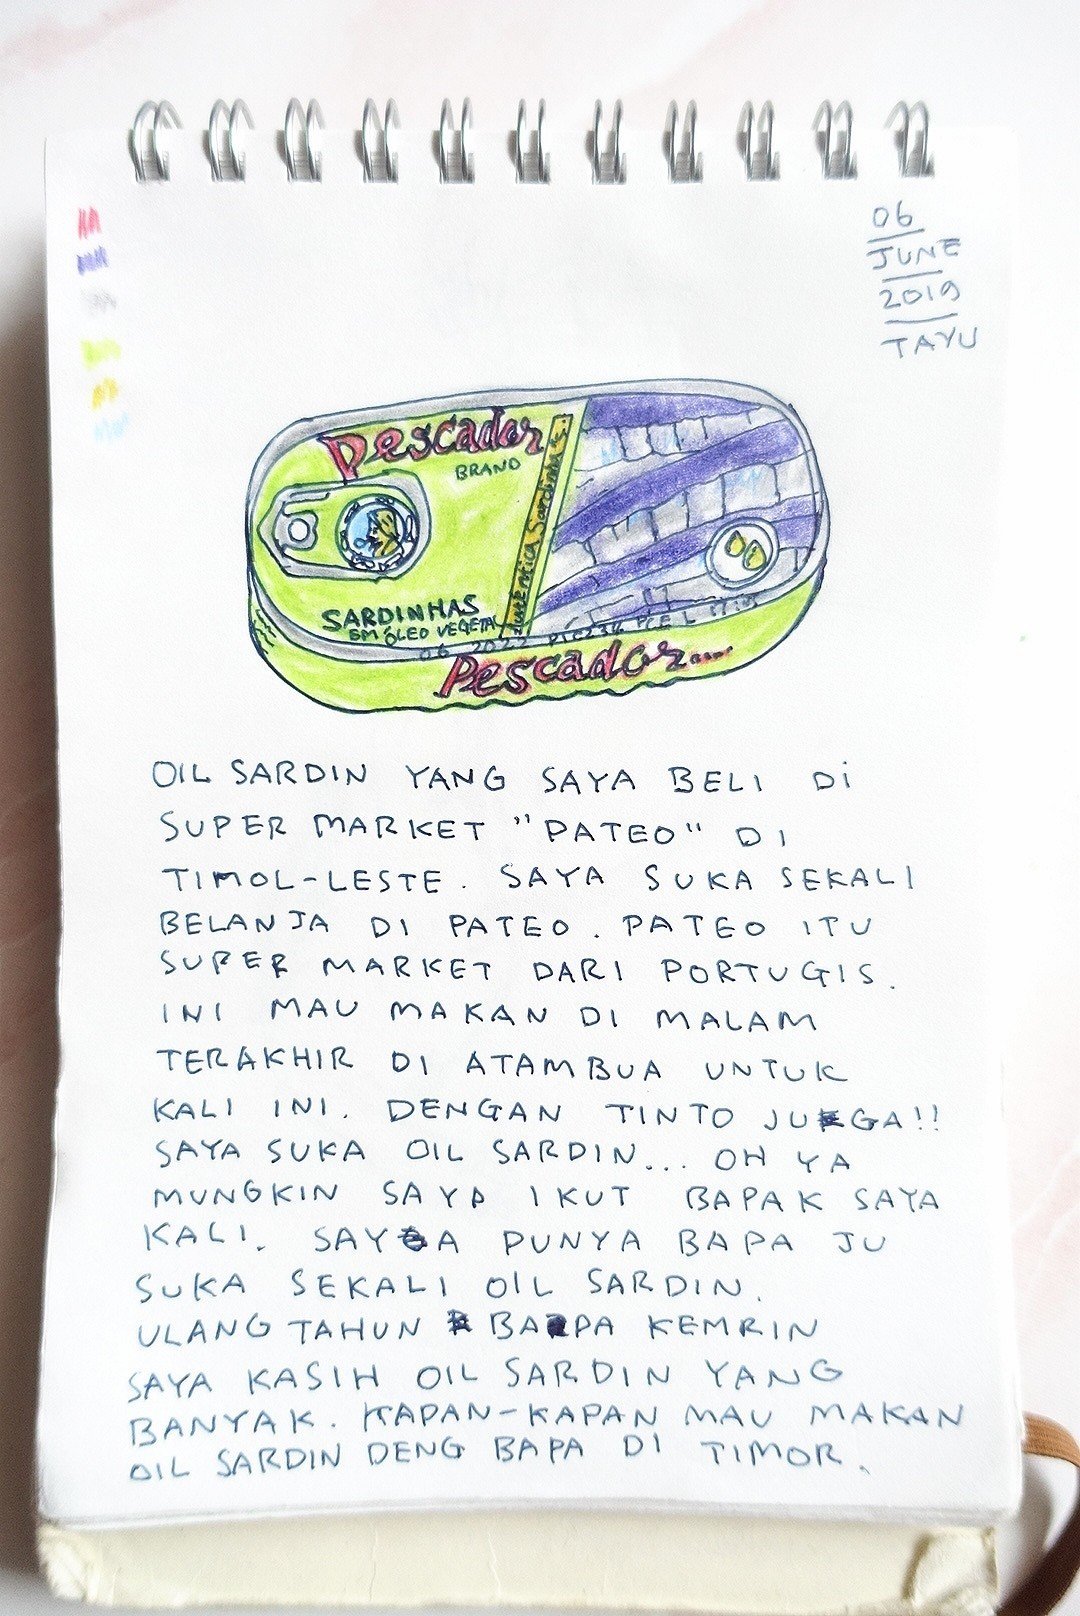 06
JUNE
2019
TAYU
Pescador
BRAND
Autêntica Sardinha
SARDINHAS
EM ÓLEO VEGETAL
06 2022
Pescador...
OIL SARDIN YANG SAYA BELI Di
SUPER MARKET "PATEO" DI
TIMOL-LESTE. SAYA SUKA SEKALI
BELANJA DI PATEO. PATEO ITU
SUPER MARKET DARI PORTUGIS.
INI MAU MAKAN DI MALAM
TERAKHIR DI ATAMBUA UNTUK
KALI INI. DENGAN TINTO JUGA!!
SAYA SUKA OIL SARDIN... OH YA
MUNGKIN SAYA IKUT BAPAK SAYA
KALI. SAYA PUNYA BAPA JU
SUKA SEKALI OIL SARDIN.
ULANG TAHUN BAPA KEMRIN
SAYA KASIH OIL SARDIN YANG
BANYAK. KAPAN-KAPAN MAU MAKAN
OIL SARDIN DENG BAPA DI TIMOR.